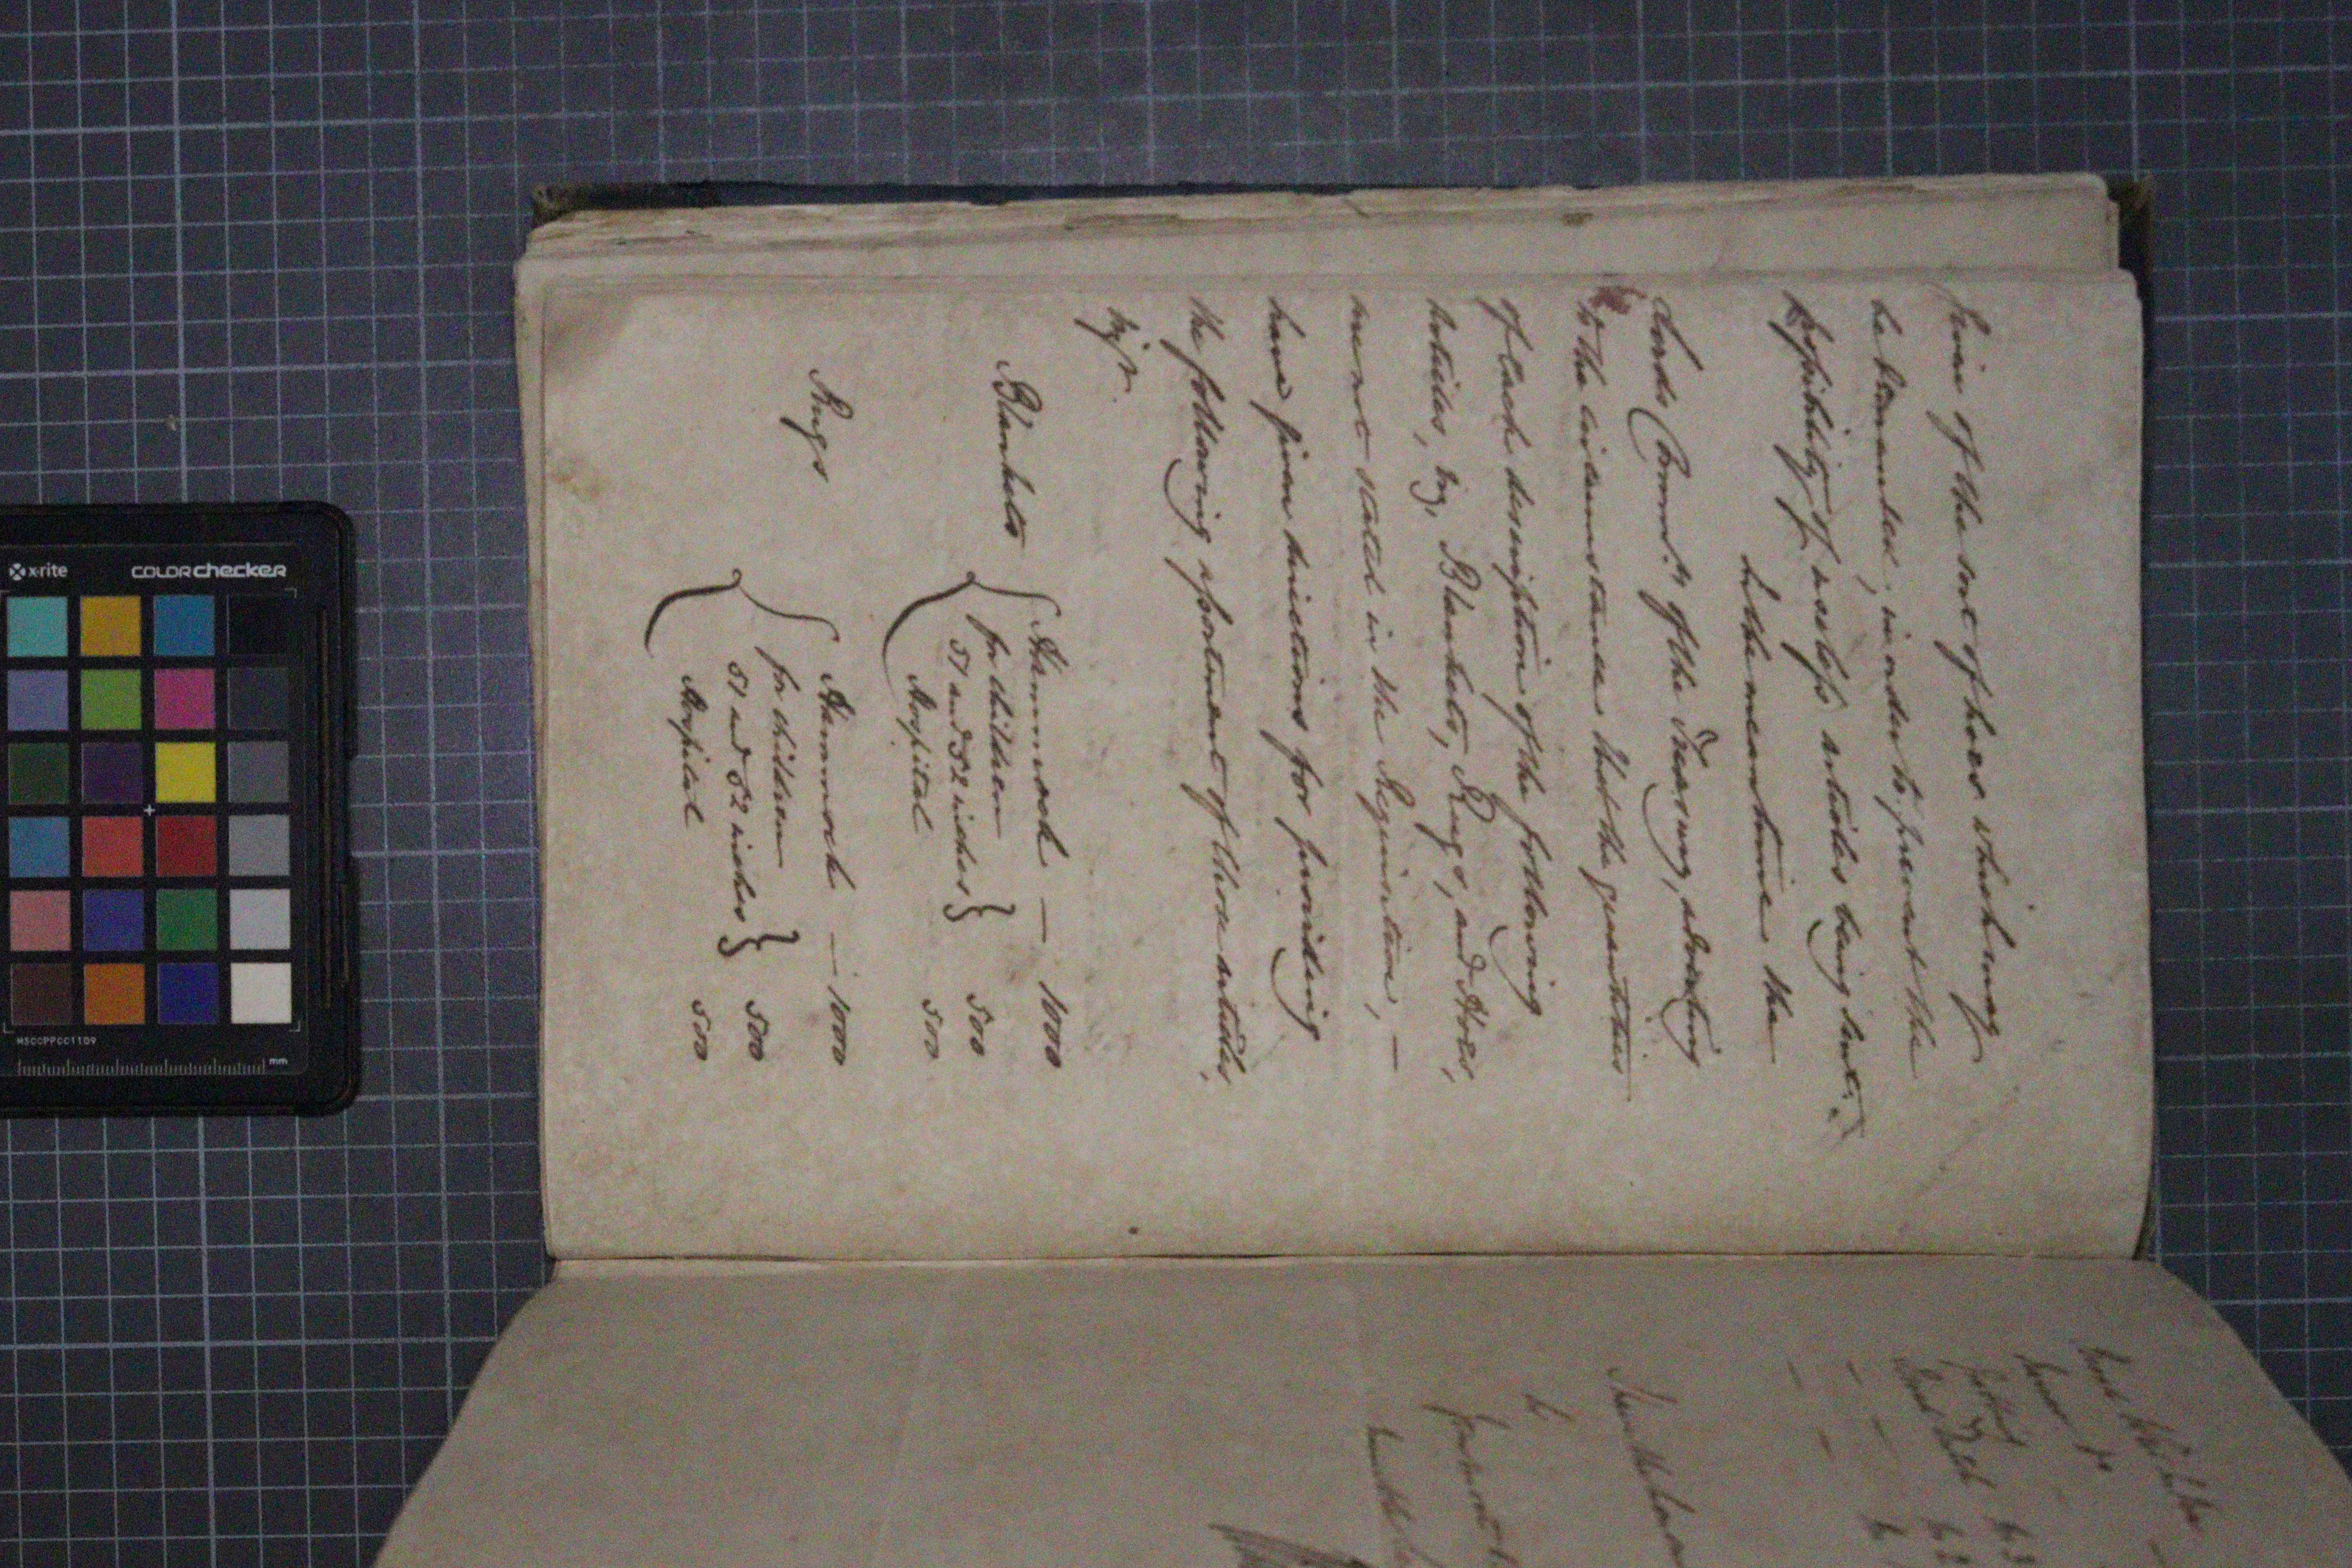 given of the sort of hoes which may
be demanded, in order to prevent the
possibility of useless articles being sent.
In the mean time the
Lords Commrs. of the Treasury, adverting
to the circumstance that the quantities
of each description of the following
articles, viz, Blankets, Rugs, and Hoes,
were not stated in the Requisition, —
have given directions for providing
the following assortment of those articles,
viz.
Blankets { Hammock — 1000
for children
51 and 52 inches } 500
Hospital 500
Rugs { Hammock — 1000
for children
51 and 52 inches } 500
Hospital 500
x-rite colorchecker
MSCCPPCC1109
mm